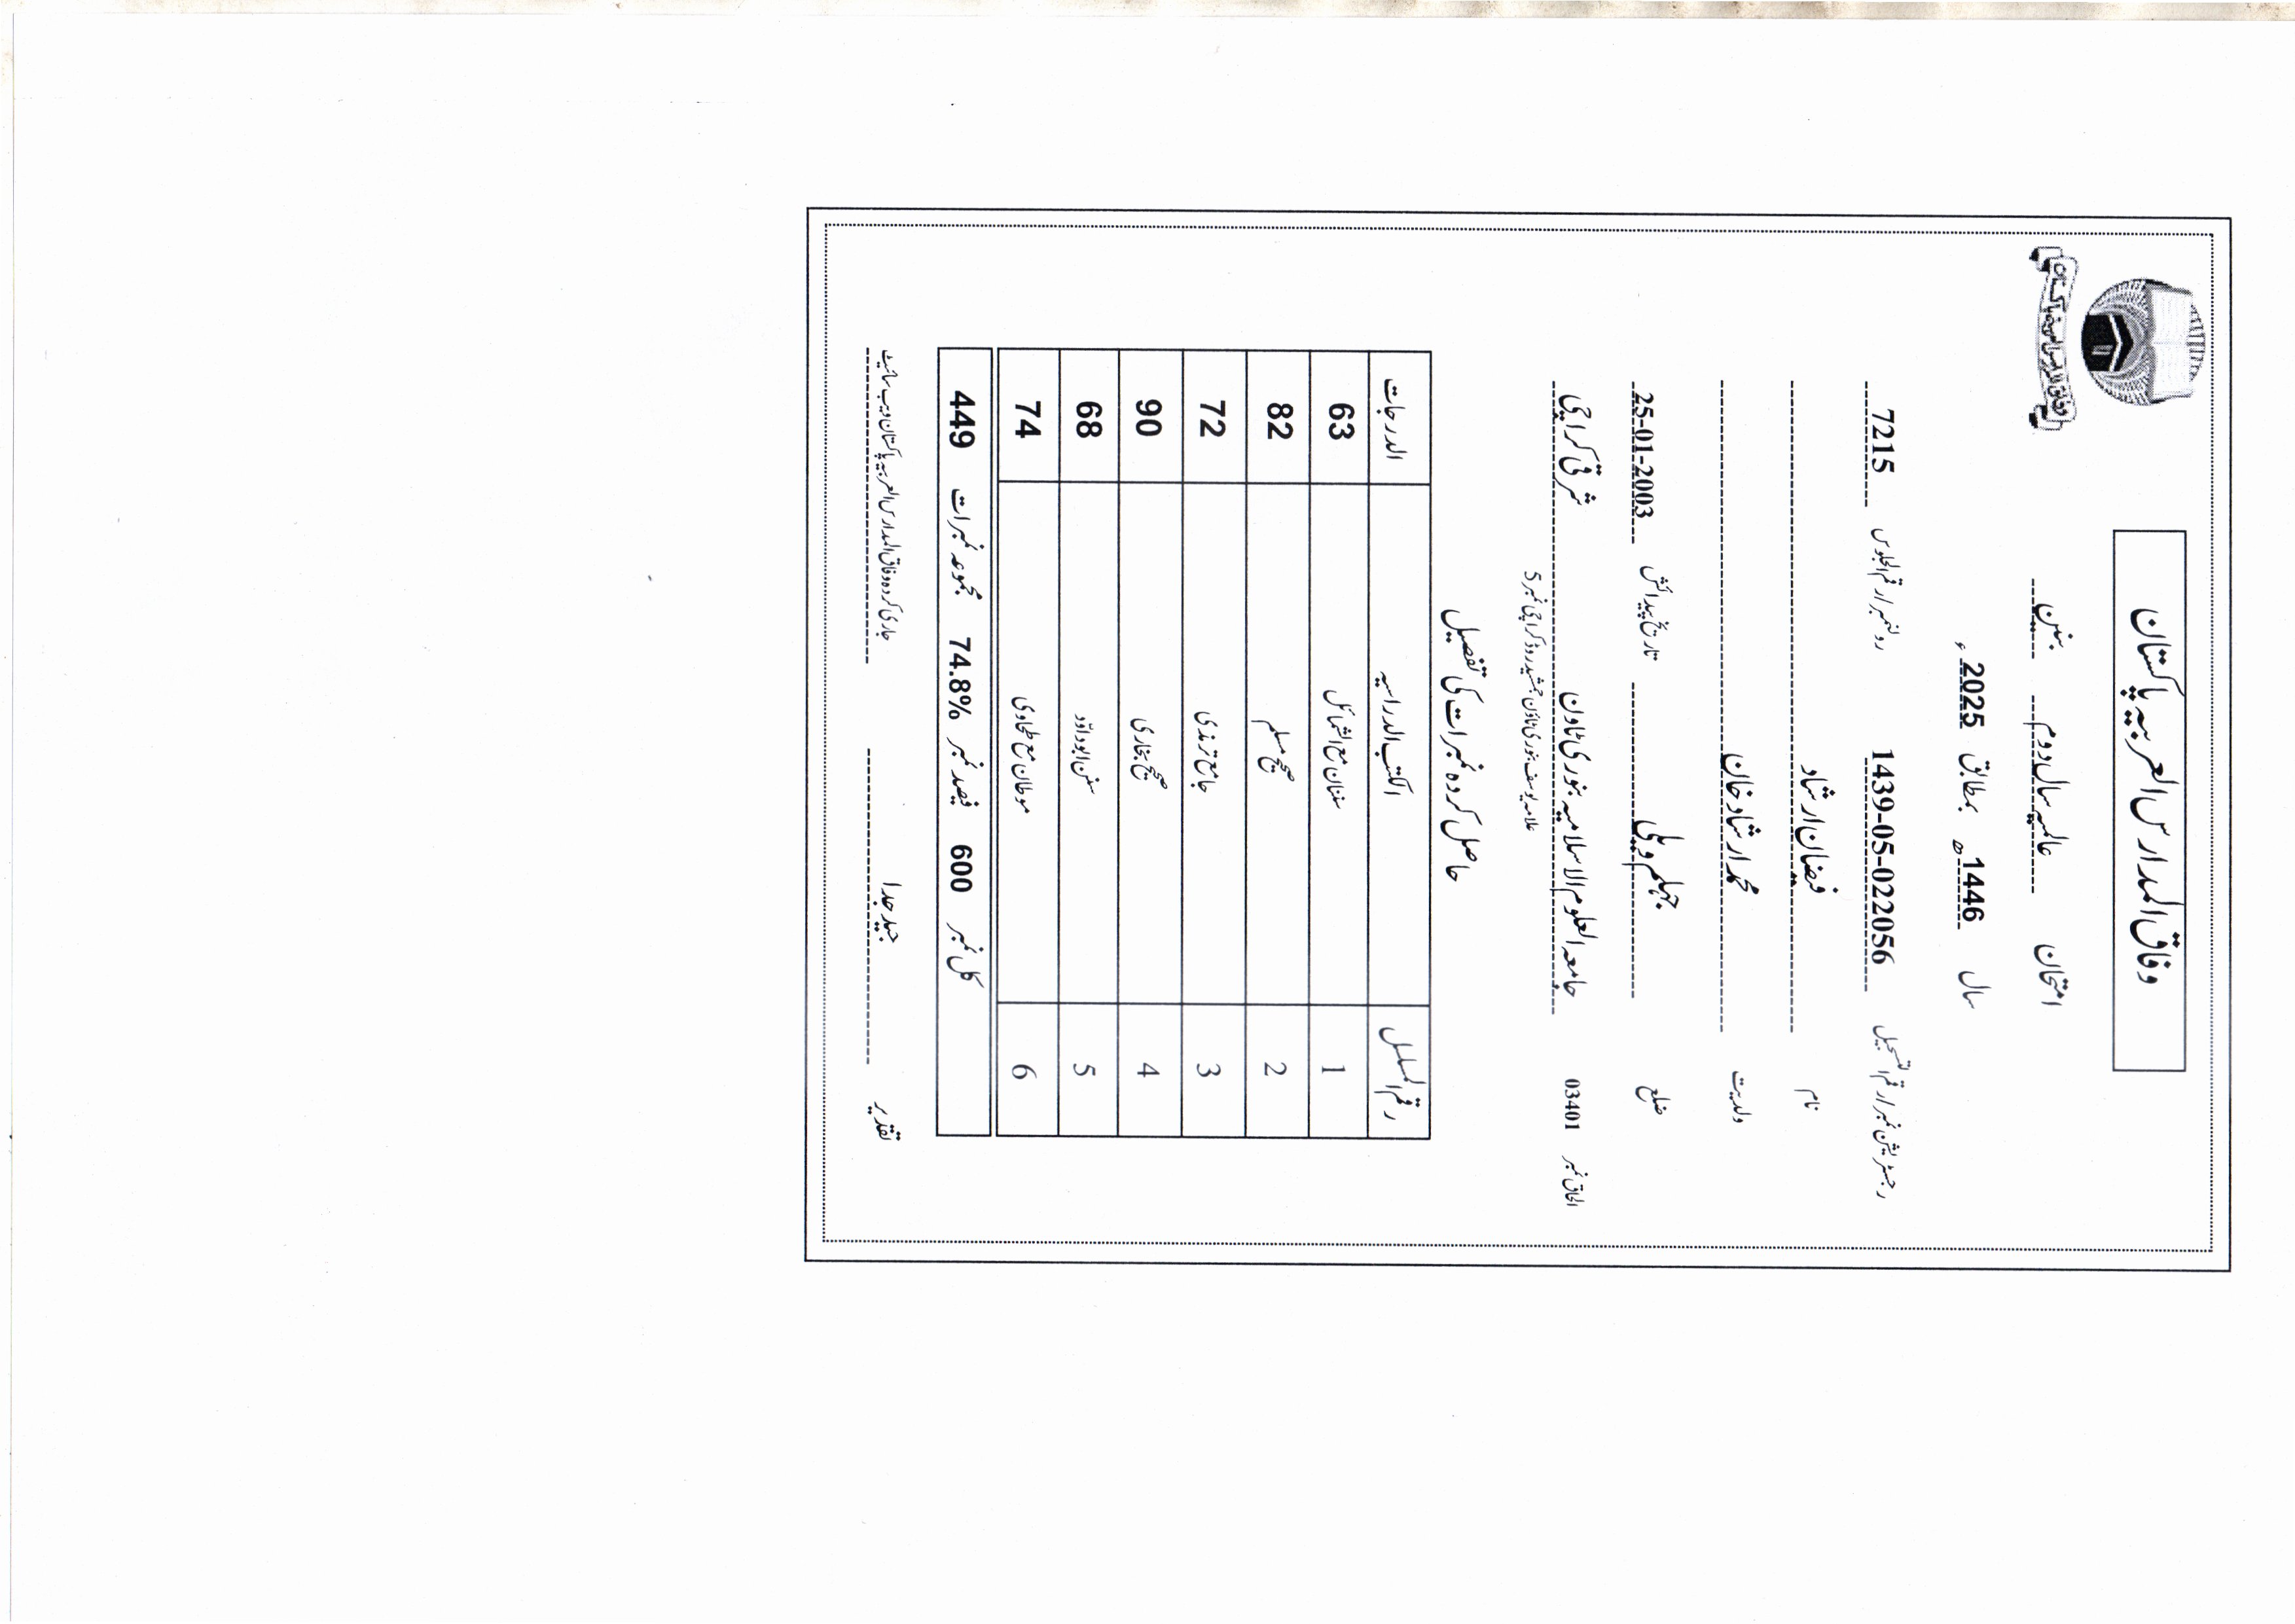 وفاق المدارس العربیہ پاکستان
وفاق المدارس العربیہ پاکستان
امتحان عالمیہ سال دوم بنین
سال 1446 ھ بمطابق 2025 ء
رجسٹریشن نمبر ارقم التسجیل 1439-05-022056 رولنمبر ارقم الجلوس 7215
نام فضان ارشاد
ولدیت محمد ارشاد خان
ضلع جہلم ویلی تاریخ پیدائش 25-01-2003
الحاق نمبر 03401 جامعہ العلوم الاسلامیہ بنوری ٹاون شرقی کراچی
علامہ یوسف بنوری ٹاؤن جمشید روڈ کراچی نمبر 5
حاصل کردہ نمبرات کی تفصیل
رقم المسلسل الکتب الدراسیہ الدرجات
1 سننان مع الشمائل 63
2 صحیح مسلم 82
3 جامع ترمذی 72
4 صحیح بخاری 90
5 سنن ابوداؤد 68
6 موطان مع طحاوی 74
کل نمبر 600 فیصد نمبر 74.8% مجموعہ نمبرات 449
تقدیر جید جدا جاری کردہ وفاق المدارس العربیہ پاکستان ویب سائیٹ